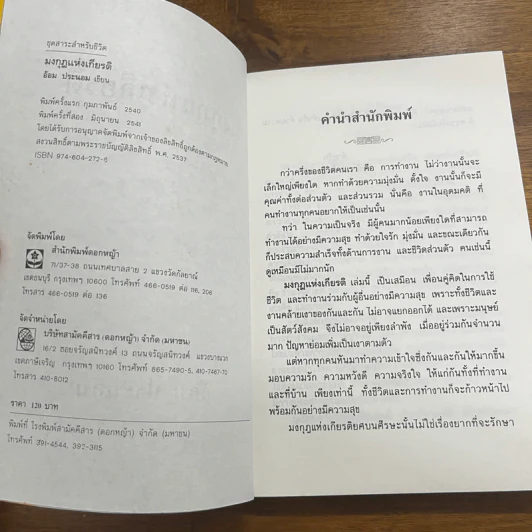 ชุดสาระสำหรับชีวิต
มงกุฎแห่งเกียรติ
อ้อม ประนอม เขียน
พิมพ์ครั้งแรก กุมภาพันธ์ 2540
พิมพ์ครั้งที่สอง มิถุนายน 2541
โดยได้รับการอนุญาตจัดพิมพ์จากเจ้าของลิขสิทธิ์ถูกต้องตามกฎหมาย
สงวนลิขสิทธิ์ตามพระราชบัญญัติลิขสิทธิ์ พ.ศ. 2537
ISBN 974-604-272-6
จัดพิมพ์โดย
สำนักพิมพ์ดอกหญ้า
71/37-38 ถนนเทศบาลสาย 2 แขวงวัดกัลยาณ์
เขตธนบุรี กรุงเทพฯ 10600 โทรศัพท์ 466-0519 ต่อ 116, 206
โทรสาร 466-0519 ต่อ 136
จัดจำหน่ายโดย
บริษัทสามัคคีสาร (ดอกหญ้า) จำกัด (มหาชน)
16/2 ซอยจรัญสนิทวงศ์ 13 ถนนจรัญสนิทวงศ์ แขวงบางแวก
เขตภาษีเจริญ กรุงเทพฯ 10160 โทรศัพท์ 865-7490-5, 410-7467-70
โทรสาร 410-8012
ราคา 120 บาท
พิมพ์ที่ โรงพิมพ์สามัคคีสาร (ดอกหญ้า) จำกัด (มหาชน)
โทรศัพท์ 391-4544, 392-3115
คำนำสำนักพิมพ์
กว่าครึ่งของชีวิตคนเรา คือ การทำงาน ไม่ว่างานนั้นจะ
เล็กใหญ่เพียงใด หากทำด้วยความมุ่งมั่น ตั้งใจ งานนั้นก็จะมี
คุณค่าทั้งต่อส่วนตัว และส่วนรวม นั่นคือ งานในอุดมคติ ที่
คนทำงานทุกคนอยากให้เป็นเช่นนั้น
ทว่า ในความเป็นจริง มีผู้คนมากน้อยเพียงใดที่สามารถ
ทำงานได้อย่างมีความสุข ทำด้วยใจรัก มุ่งมั่น และขณะเดียวกัน
ก็ประสบความสำเร็จทั้งด้านการงาน และชีวิตส่วนตัว คนเช่นนี้
ดูเหมือนมีไม่มากนัก
มงกุฎแห่งเกียรติ เล่มนี้ เป็นเสมือน เพื่อนคู่คิดในการใช้
ชีวิต และทำงานร่วมกับผู้อื่นอย่างมีความสุข เพราะทั้งชีวิตและ
งานคล้ายเงาของกันและกัน ไม่อาจแยกออกได้ และเพราะมนุษย์
เป็นสัตว์สังคม จึงไม่อาจอยู่เพียงลำพัง เมื่ออยู่ร่วมกันจำนวน
มาก ปัญหาย่อมเพิ่มเป็นเงาตามตัว
แต่หากทุกคนหันมาทำความเข้าใจซึ่งกันและกันให้มากขึ้น
มอบความรัก ความหวังดี ความจริงใจ ให้แก่กันทั้งที่ทำงาน
และที่บ้าน เพียงเท่านี้ ทั้งชีวิตและการทำงานก็จะก้าวหน้าไป
พร้อมกันอย่างมีความสุข
มงกุฎแห่งเกียรติยศบนศีรษะนั้นไม่ใช่เรื่องยากที่จะรักษา